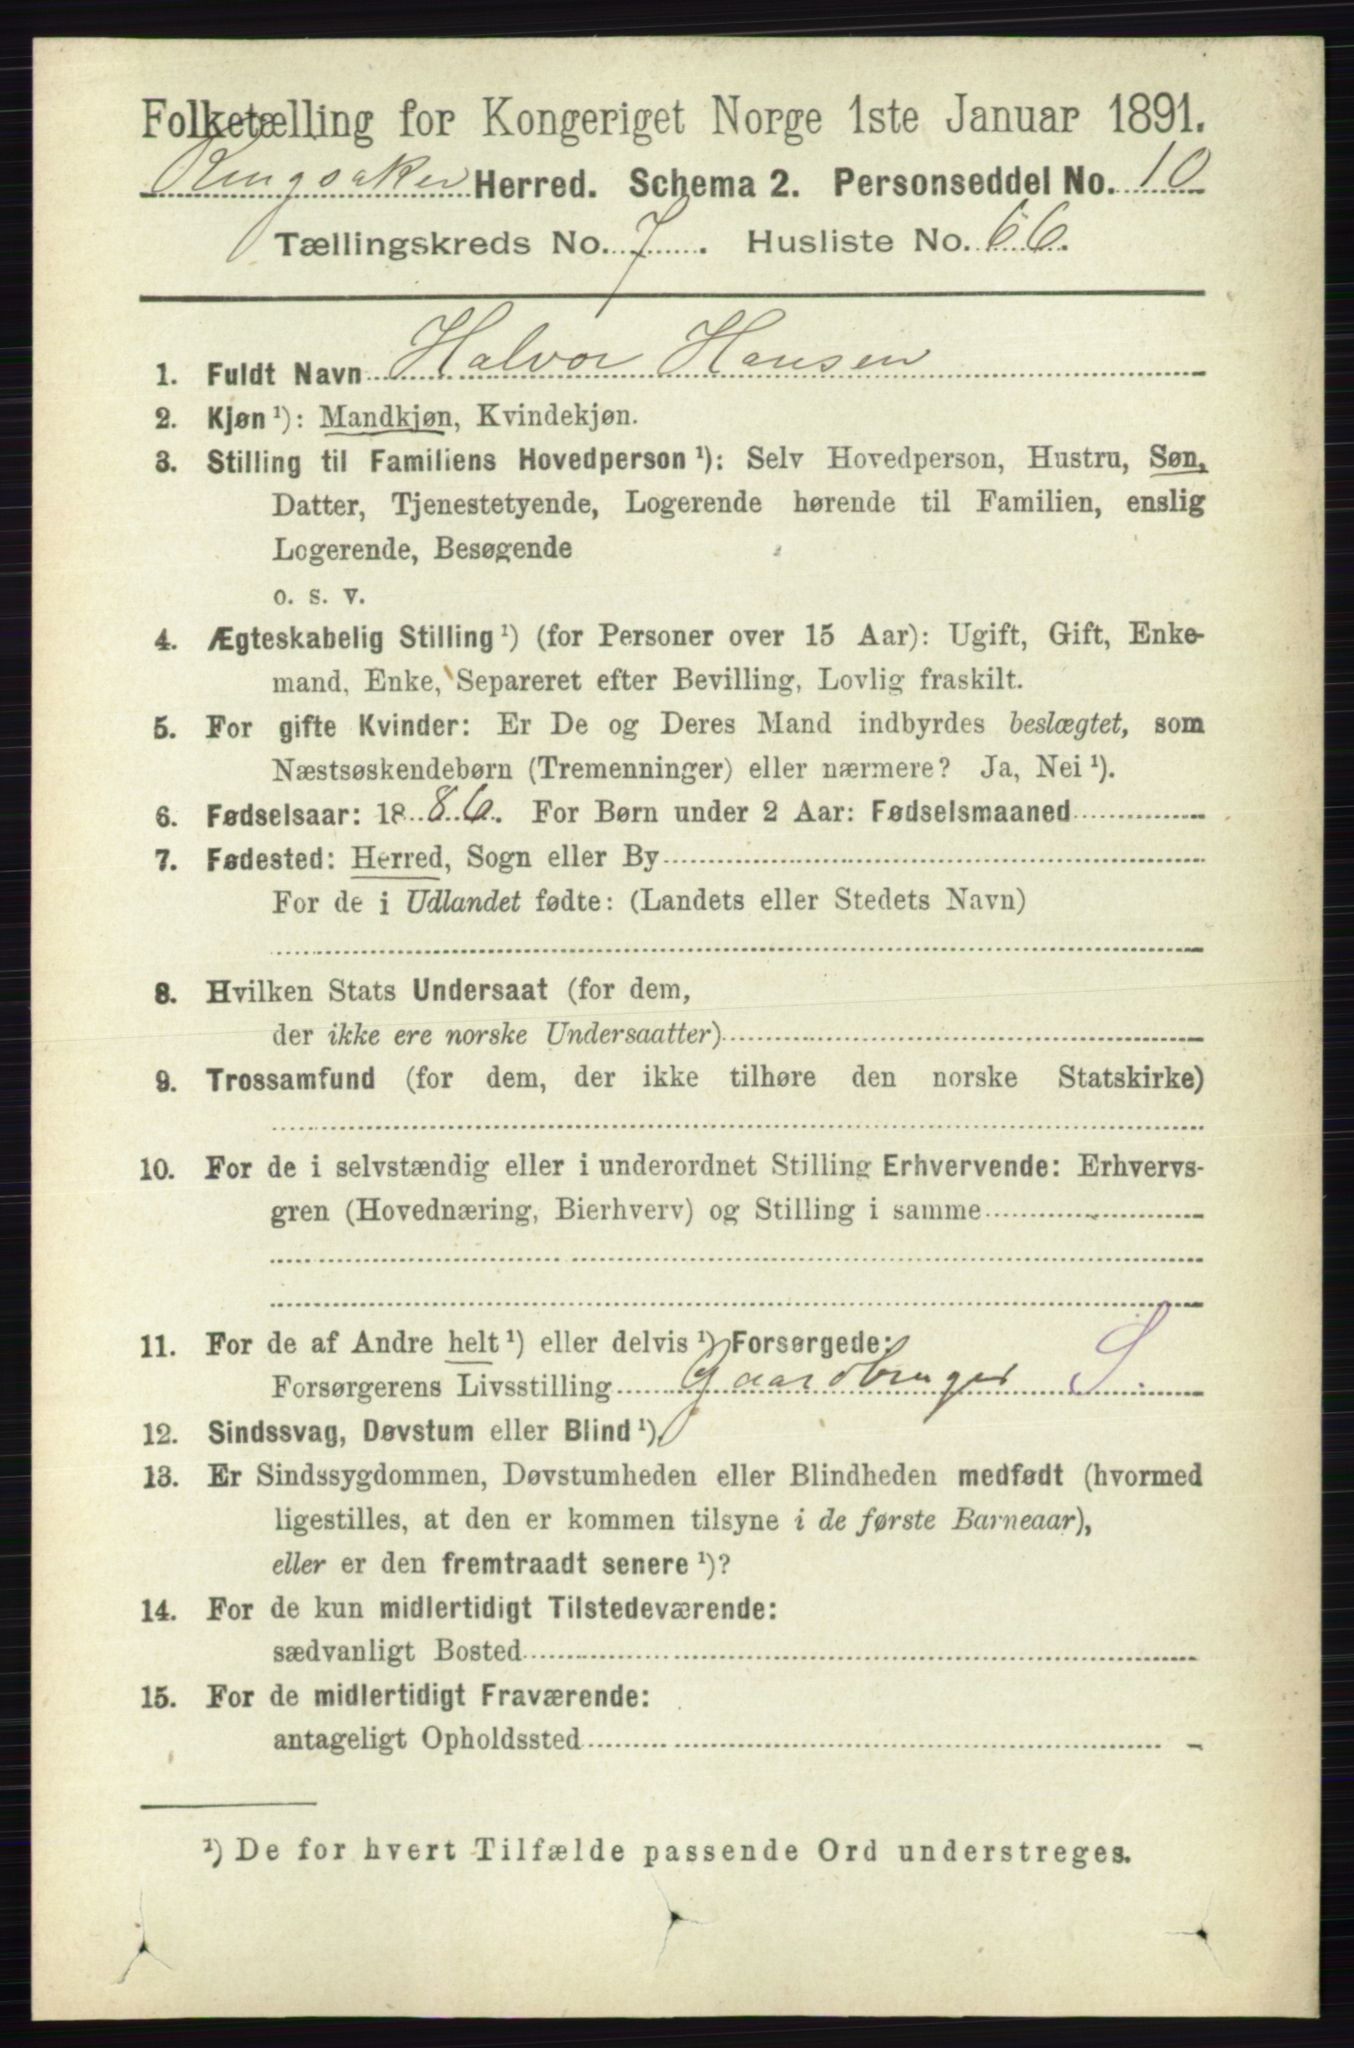 Folketælling for Kongeriget Norge 1ste Januar 1891.
Ringsaker Herred. Schema 2. Personseddel No. 10
Tællingskreds No. 7. Husliste No. 66.
1. Fuldt Navn Halvor Hansen
2. Kjøn ¹): Mandkjøn, Kvindekjøn.
3. Stilling til Familiens Hovedperson ¹): Selv Hovedperson, Hustru, Søn,
Datter, Tjenestetyende, Logerende hørende til Familien, enslig
Logerende, Besøgende
o. s. v.
4. Ægteskabelig Stilling ¹) (for Personer over 15 Aar): Ugift, Gift, Enke-
mand, Enke, Separeret efter Bevilling, Lovlig fraskilt.
5. For gifte Kvinder: Er De og Deres Mand indbyrdes beslægtet, som
Næstsøskendebørn (Tremenninger) eller nærmere? Ja, Nei ¹).
6. Fødselsaar: 1886. For Børn under 2 Aar: Fødselsmaaned
7. Fødested: Herred, Sogn eller By
For de i Udlandet fødte: (Landets eller Stedets Navn)
8. Hvilken Stats Undersaat (for dem,
der ikke ere norske Undersaatter)
9. Trossamfund (for dem, der ikke tilhøre den norske Statskirke)
10. For de i selvstændig eller i underordnet Stilling Erhvervende: Erhvervs-
gren (Hovednæring, Bierhverv) og Stilling i samme
11. For de af Andre helt ¹) eller delvis ¹) Forsørgede:
Forsørgerens Livsstilling Gaardbruger S.
12. Sindssvag, Døvstum eller Blind ¹).
13. Er Sindssygdommen, Døvstumheden eller Blindheden medfødt (hvormed
ligestilles, at den er kommen tilsyne i de første Barneaar),
eller er den fremtraadt senere ¹)?
14. For de kun midlertidigt Tilstedeværende:
sædvanligt Bosted
15. For de midlertidigt Fraværende:
antageligt Opholdssted
¹) De for hvert Tilfælde passende Ord understreges.